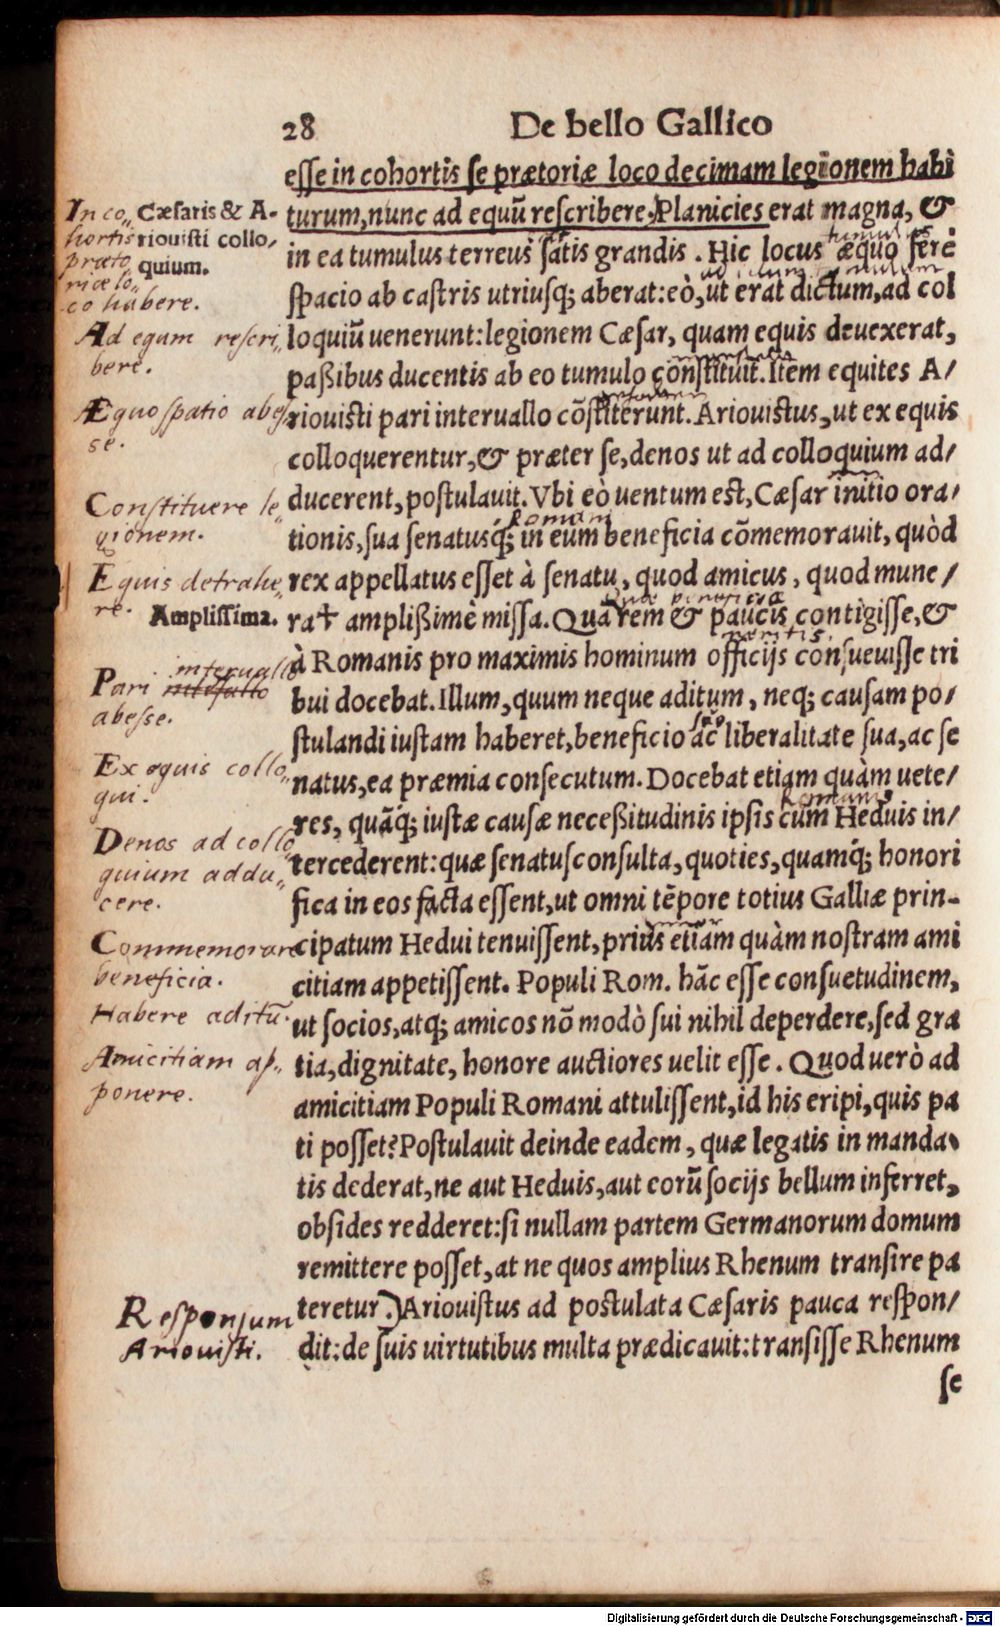 28 De bello Gallico
esse in cohortis se prætoriæ loco decimam legionem habi
turum, nunc ad equũ rescribere. Planicies erat magna, &
in ea tumulus terreus satis grandis. Hic locus æquo ferè
spacio ab castris utriusq; aberat: eò, ut erat dictum, ad col
loquiũ uenerunt: legionem Cæsar, quam equis deuexerat,
paßibus ducentis ab eo tumulo constituit. Item equites A/
riouisti pari interuallo cõstiterunt. Ariouistus, ut ex equis
colloquerentur, & præter se, denos ut ad colloquium ad/
ducerent, postulauit. Vbi eò uentum est, Cæsar initio ora/
tionis, sua senatusq́; in eum beneficia cõmemorauit, quòd
rex appellatus esset à senatu, quod amicus, quod mune/
ra✝ amplißimè missa. Quam rem & paucis contigisse, &
à Romanis pro maximis hominum officijs consueuisse tri
bui docebat. Illum, quum neque aditum, neq; causam po/
stulandi iustam haberet, beneficio ac liberalitate sua, ac se
natus, ea præmia consecutum. Docebat etiam quàm uete/
res, quàq́; iustæ causæ neceßitudinis ipsis cum Heduis in/
tercederent: quæ senatusconsulta, quoties, quamq́; honori
fica in eos facta essent, ut omni tẽpore totius Galliæ prin-
cipatum Hedui tenuissent, prius etiam quàm nostram ami
citiam appetissent. Populi Rom. hãc esse consuetudinem,
ut socios, atq; amicos nõ modò sui nihil deperdere, sed gra
tia, dignitate, honore auctiores uelit esse. Quod uerò ad
amicitiam Populi Romani attulissent, id his eripi, quis pa
ti posset? Postulauit deinde eadem, quæ legatis in manda
tis dederat, ne aut Heduis, aut eorũ socijs bellum inferret,
obsides redderet: si nullam partem Germanorum domum
remittere posset, at ne quos amplius Rhenum transire pa
teretur.) Ariouistus ad postulata Cæsaris pauca respon/
dit: de suis uirtutibus multa prædicauit: transisse Rhenum
se
Cæsaris & A-
riouisti collo/
quium.
Amplissima.
In co„
hortis
præto
riæ lo„
co habere.
Ad equm rescri„
bere.
Æquo spatio abes
se.
Constituere le„
gionem.
Equis detrahe„
re.
interuallo
Pari
abesse.
Ex equis collo„
qui.
Denos ad collo
quium addu„
cere.
Commemorare
beneficia.
Habere aditũ.
Amicitiam ap„
ponere.
Responsum
Ariouisti.
tumulus
Romam
Digitalisierung gefördert durch die Deutsche Forschungsgemeinschaft - DFG